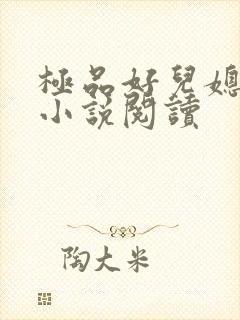 極品好兒媳
小說閱讀
陶大米